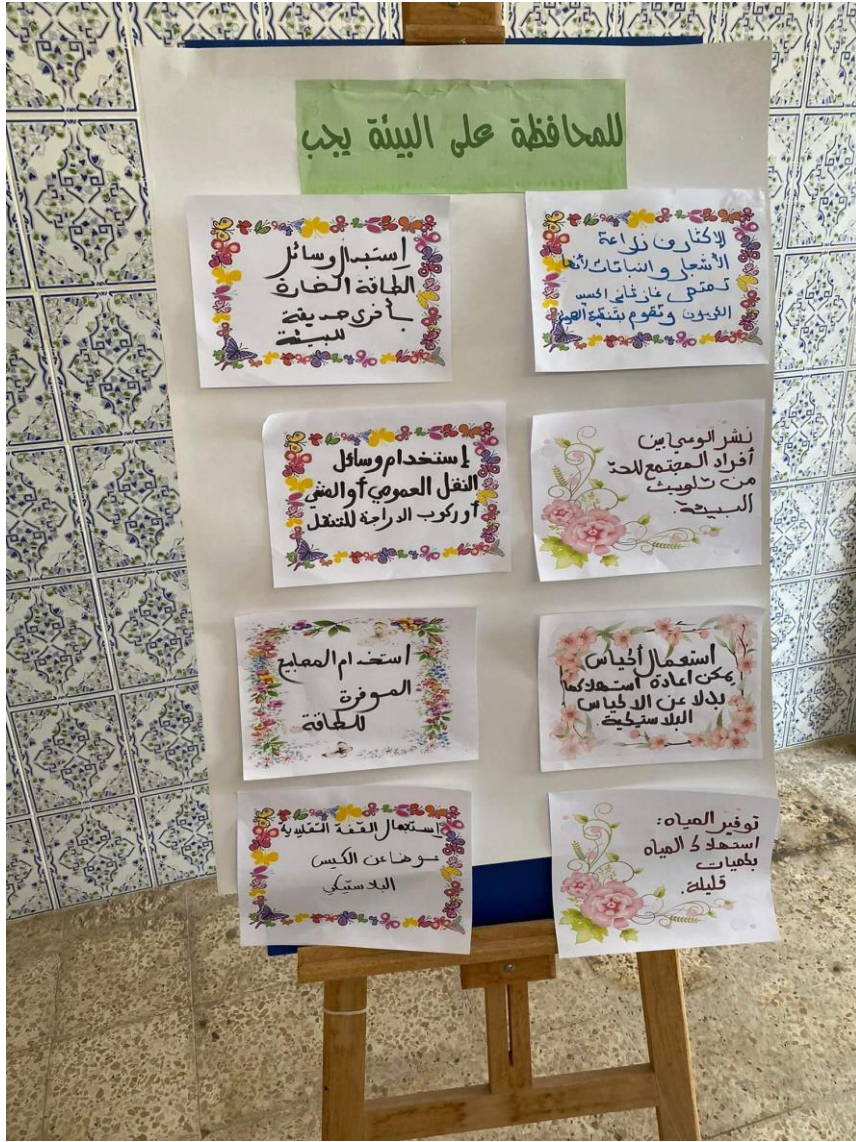 للمحافظة على البيئة يجب
الاكثار من زراعة
الأشجار و النباتات لأنها
تمتص غاز ثاني اكسيد
الكربون وتقوم بتنقية الهواء
إستبدال وسائل
الطاقة الضارة
بأخرى صديقة
للبيئة
نشر الوعي بين
أفراد المجتمع للحدّ
من تلويث
البيئة.
إستخدام وسائل
النقل العمومي أو المشي
أو ركوب الدراجة للتنقل
استعمال أكياس
يمكن اعادة استهلاكها
بدلا عن الاكياس
البلاستيكية.
استخدام المصابيح
الموفرة
للطاقة
توفير المياه:
استهلاك المياه
بكميات
قليلة.
إستعمال القفة التقليدية
عوضا عن الكيس
البلاستيكي